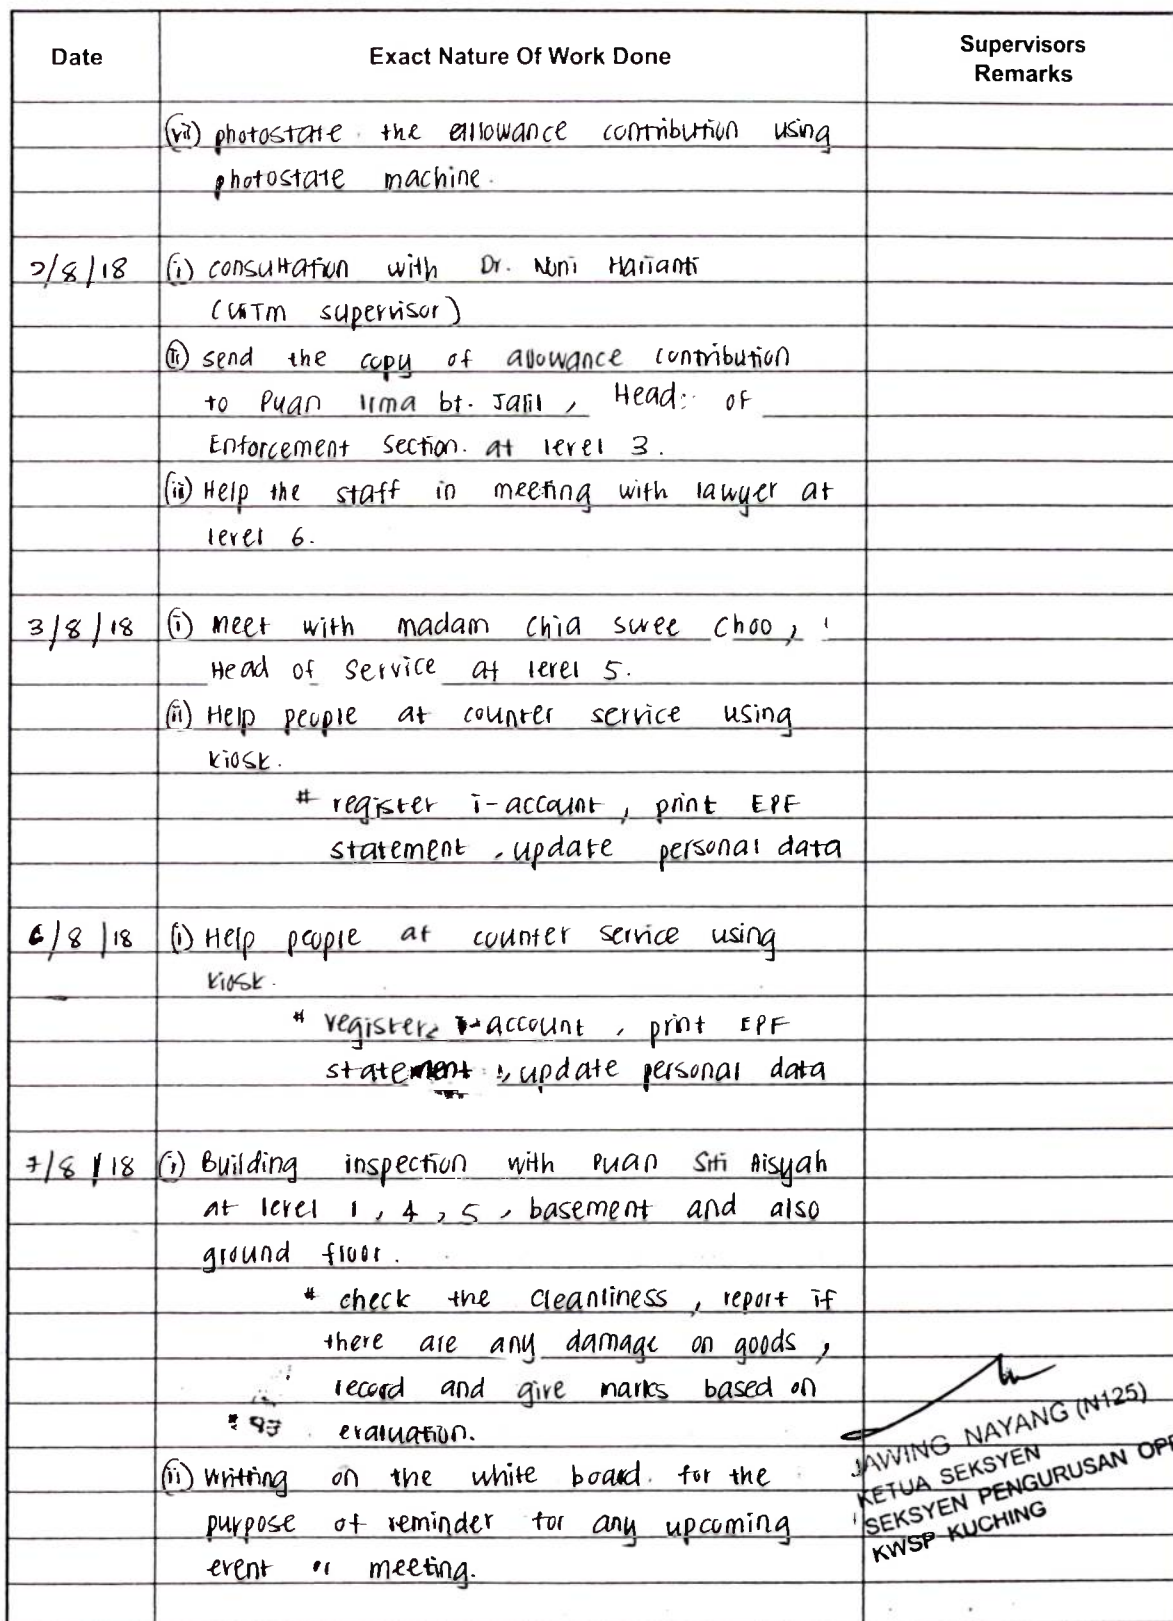 Date
Exact Nature Of Work Done
Supervisors
Remarks
(vii) photostate the allowance contribution using
photostate machine.
2/8/18 (i) consultation with Dr. Noni Harianti
(UiTM supervisor)
(ii) send the copy of allowance contribution
to Puan Irma bt. Jalil, Head of
Enforcement Section. at level 3.
(iii) Help the staff in meeting with lawyer at
level 6.
3/8/18 (i) meet with madam Chia Swee Choo,
Head of Service at level 5.
(ii) Help people at counter service using
kiosk.
# register i-account, print EPF
statement, update personal data
6/8/18 (i) Help people at counter service using
kiosk.
# register i-account, print EPF
statement, update personal data
7/8/18 (i) Building inspection with Puan Siti Aisyah
at level 1, 4, 5, basement and also
ground floor.
# check the cleanliness, report if
there are any damage on goods,
record and give marks based on
evaluation.
(ii) Writing on the white board for the
purpose of reminder for any upcoming
event or meeting.
JAWING NAYANG (N125)
KETUA SEKSYEN
SEKSYEN PENGURUSAN OPE
KWSP KUCHING